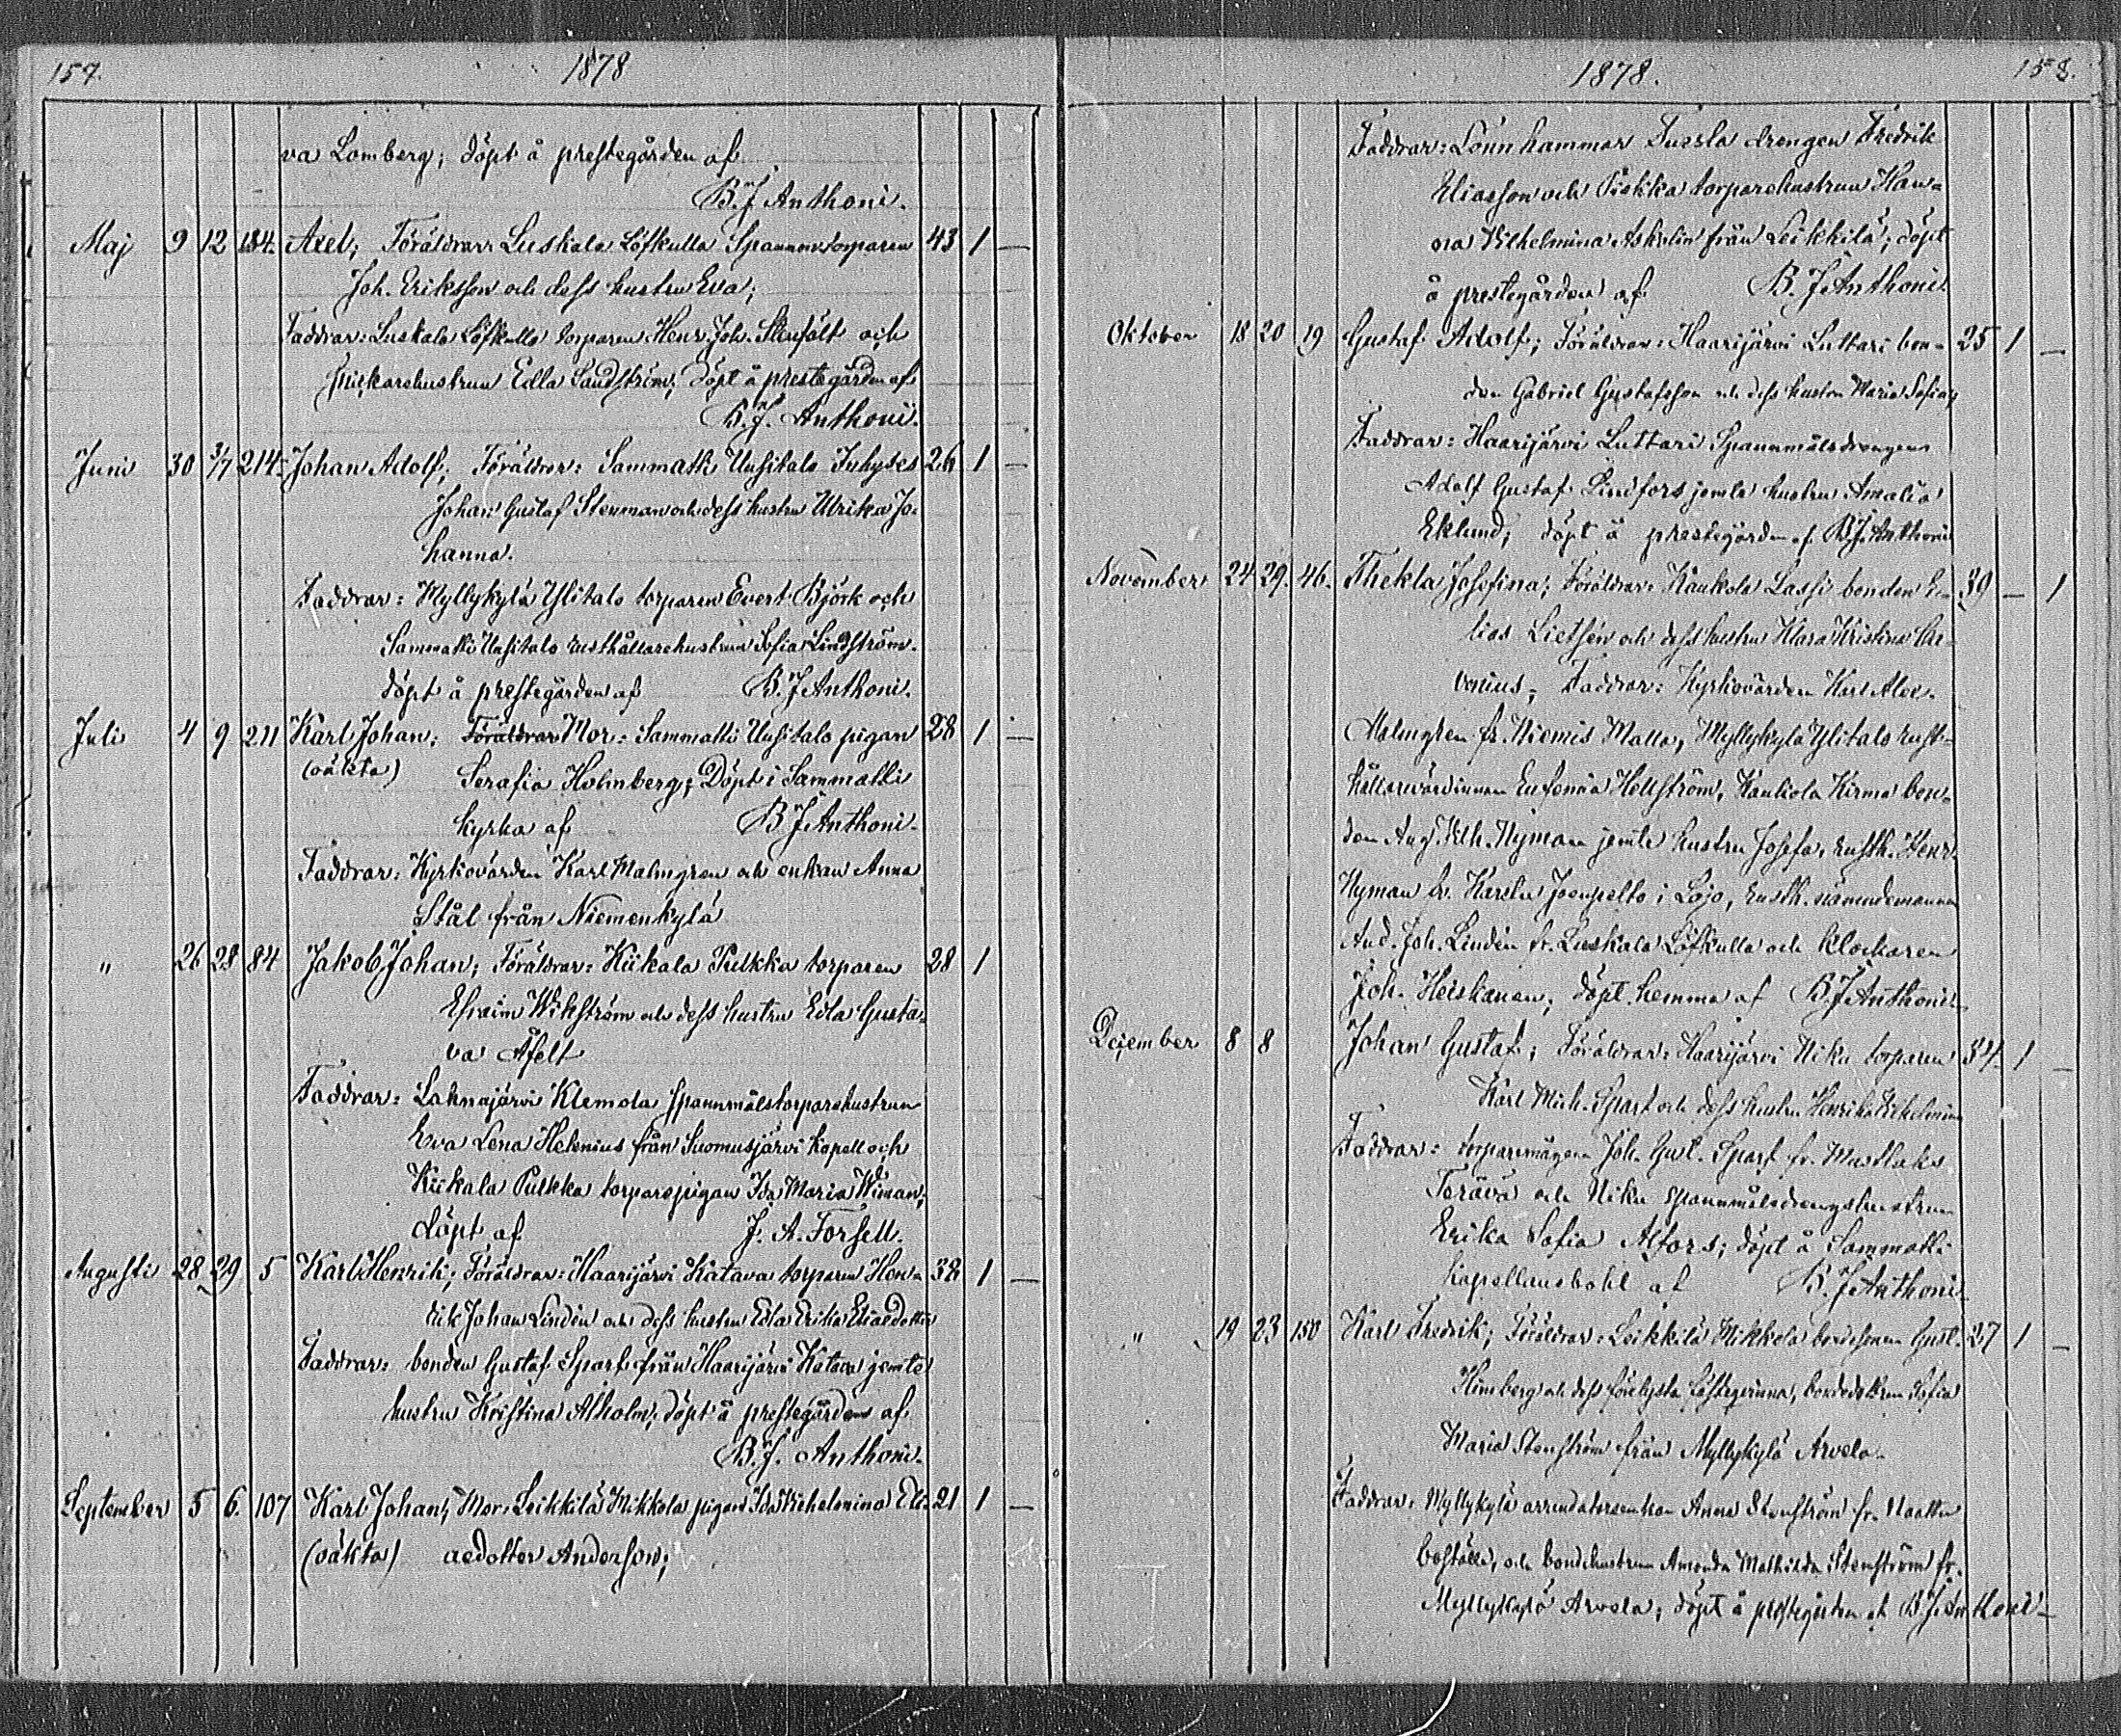 157. 1878
va Lomberg; döpt å prestegården af
B. J. Anthoni.
Maj 9 12 184. Axel; Föräldrar: Luskala Löfkulla Spannm.torparen 43 1 —
Joh. Eriksson och dess hustru Eva;
Faddrar: Luskala Löfkulla torparen Henr. Joh. Stenfält och
snickarehustrun Edla Sandström; döpt å prestegården af
B. J. Anthoni.
Juni 30 3/7 214. Johan Adolf; Föräldrar: Sammatti Uusitalo Inhyses 26 1 —
Johan Gustaf Stenman och dess hustru Ulrika Jo-
hanna.
Faddrar: Myllykylä Ylitalo torparen Evert Björk och
Sammatti Uusitalo rusthållarehustrun Sofia Lindström.
döpt å prestegården af B. J. Anthoni.
Juli 4 9 211 Karl Johan; Föräldrar Mor: Sammatti Uusitalo pigan 28 1 —
(oäkta) Serafia Holmberg; Döpt i Sammatti
kyrka af B J Anthoni.
Faddrar: Kyrkovärden Karl Malmgren och enkan Anna
Stål från Niemenkylä
" 26 28 84 Jakob Johan; Föräldrar: Kiikala Pulkka torparen 28 1
Efraim Wikström och dess hustru Edla Gusta-
va Afelt
Faddrar: Lahnajärvi Klemola spannmålstorparehustrun
Eva Lena Helenius från Suomusjärvi kapell och
Kiikala Pulkka torparepigan Ida Maria Wiman;
döpt af J. A. Forsell.
Augusti 28 29 5 Karl Henrik; Föräldrar: Haarijärvi Katava torparen Hen- 38 1 —
rik Johan Lindén och dess hustru Edla Erika Eliaedotter
Faddrar: bonden Gustaf Sparf från Haarijärvi Katava jemte
hustru Kristina Alholm; döpt å prestegården af
B. J. Anthoni.
September 5 6. 107 Karl Johan; Mor: Leikkilä Mikkola pigan Ida Wilhelmina Eli- 21 1 —
(oäkta) aedotter Anderson;
1878. 158.
Faddrar: Lönnhammar drengen Fredrik
Eliasson och torparehustrun Han-
na Wilhelmina Askolin från Leikkilä; döpt
å prestegården af B. J. Anthoni
Oktober 18 20 19 Gustaf Adolf; Föräldrar: Haarijärvi Luttari bon- 25 1 —
den Gabriel Gustafsson och dess hustru Maria Sofia;
Faddrar: Haarijärvi Luttari Spannmålsdrengen
Adolf Gustaf Lindfors jemte hustru Amalia
Eklund; döpt å prestegården af B. J. Anthoni
November 24 29. 46. Thekla Josefina; Föräldrar: Kaukola Lassi bonden E- 39 — 1
lias Lietsén och dess hustru Klara Kristina Ar-
venius; Faddrar: Kyrkovärden Karl Alex.
Malmgren fr. Niemis Malla, Myllykylä Ylitalo rust-
hållarevärdinnan Eufemia Hellström, Kaukola Kirma bon-
den Aug. Wilh. Nyman jemte hustru Josefa, rusth. Henr.
Nyman fr. Karstu Joenpelto i Lojo, rusth. nämndemannen
And. Joh. Lindén fr. Luskala Löfkulla och klockaren
Joh. Heiskanen; döpt hemma af B. J. Anthoni
December 8 8 Johan Gustaf; Föräldrar: Haarijärvi Niku torparen 34 1 —
Karl Mich. Sparf och dess hustru Henrika Wilhelmina
Faddrar: torparemågen Joh. Gust. Sparf fr. Mustlaks
Terävä och Niku spannmålsdrengshustrun
Erika Sofia Alfors; döpt å Sammatti
kapellansbohl af B. J. Anthoni
" 19 23 150 Karl Fredrik; Föräldrar: Leikkilä Mikkola bondesonen Gust. 27 1 —
Himberg och dess förelysta fästeqvinna, bondedottren Sofia
Maria Stenström från Myllykylä Arvela.
Faddrar: Myllykylä arrendatorsenkan Anna Stenström fr. Naatun
boställe, och bondehustrun Amanda Mathilda Stenström fr.
Myllykylä Arvela; döpt å prestegården af B. J. Anthoni